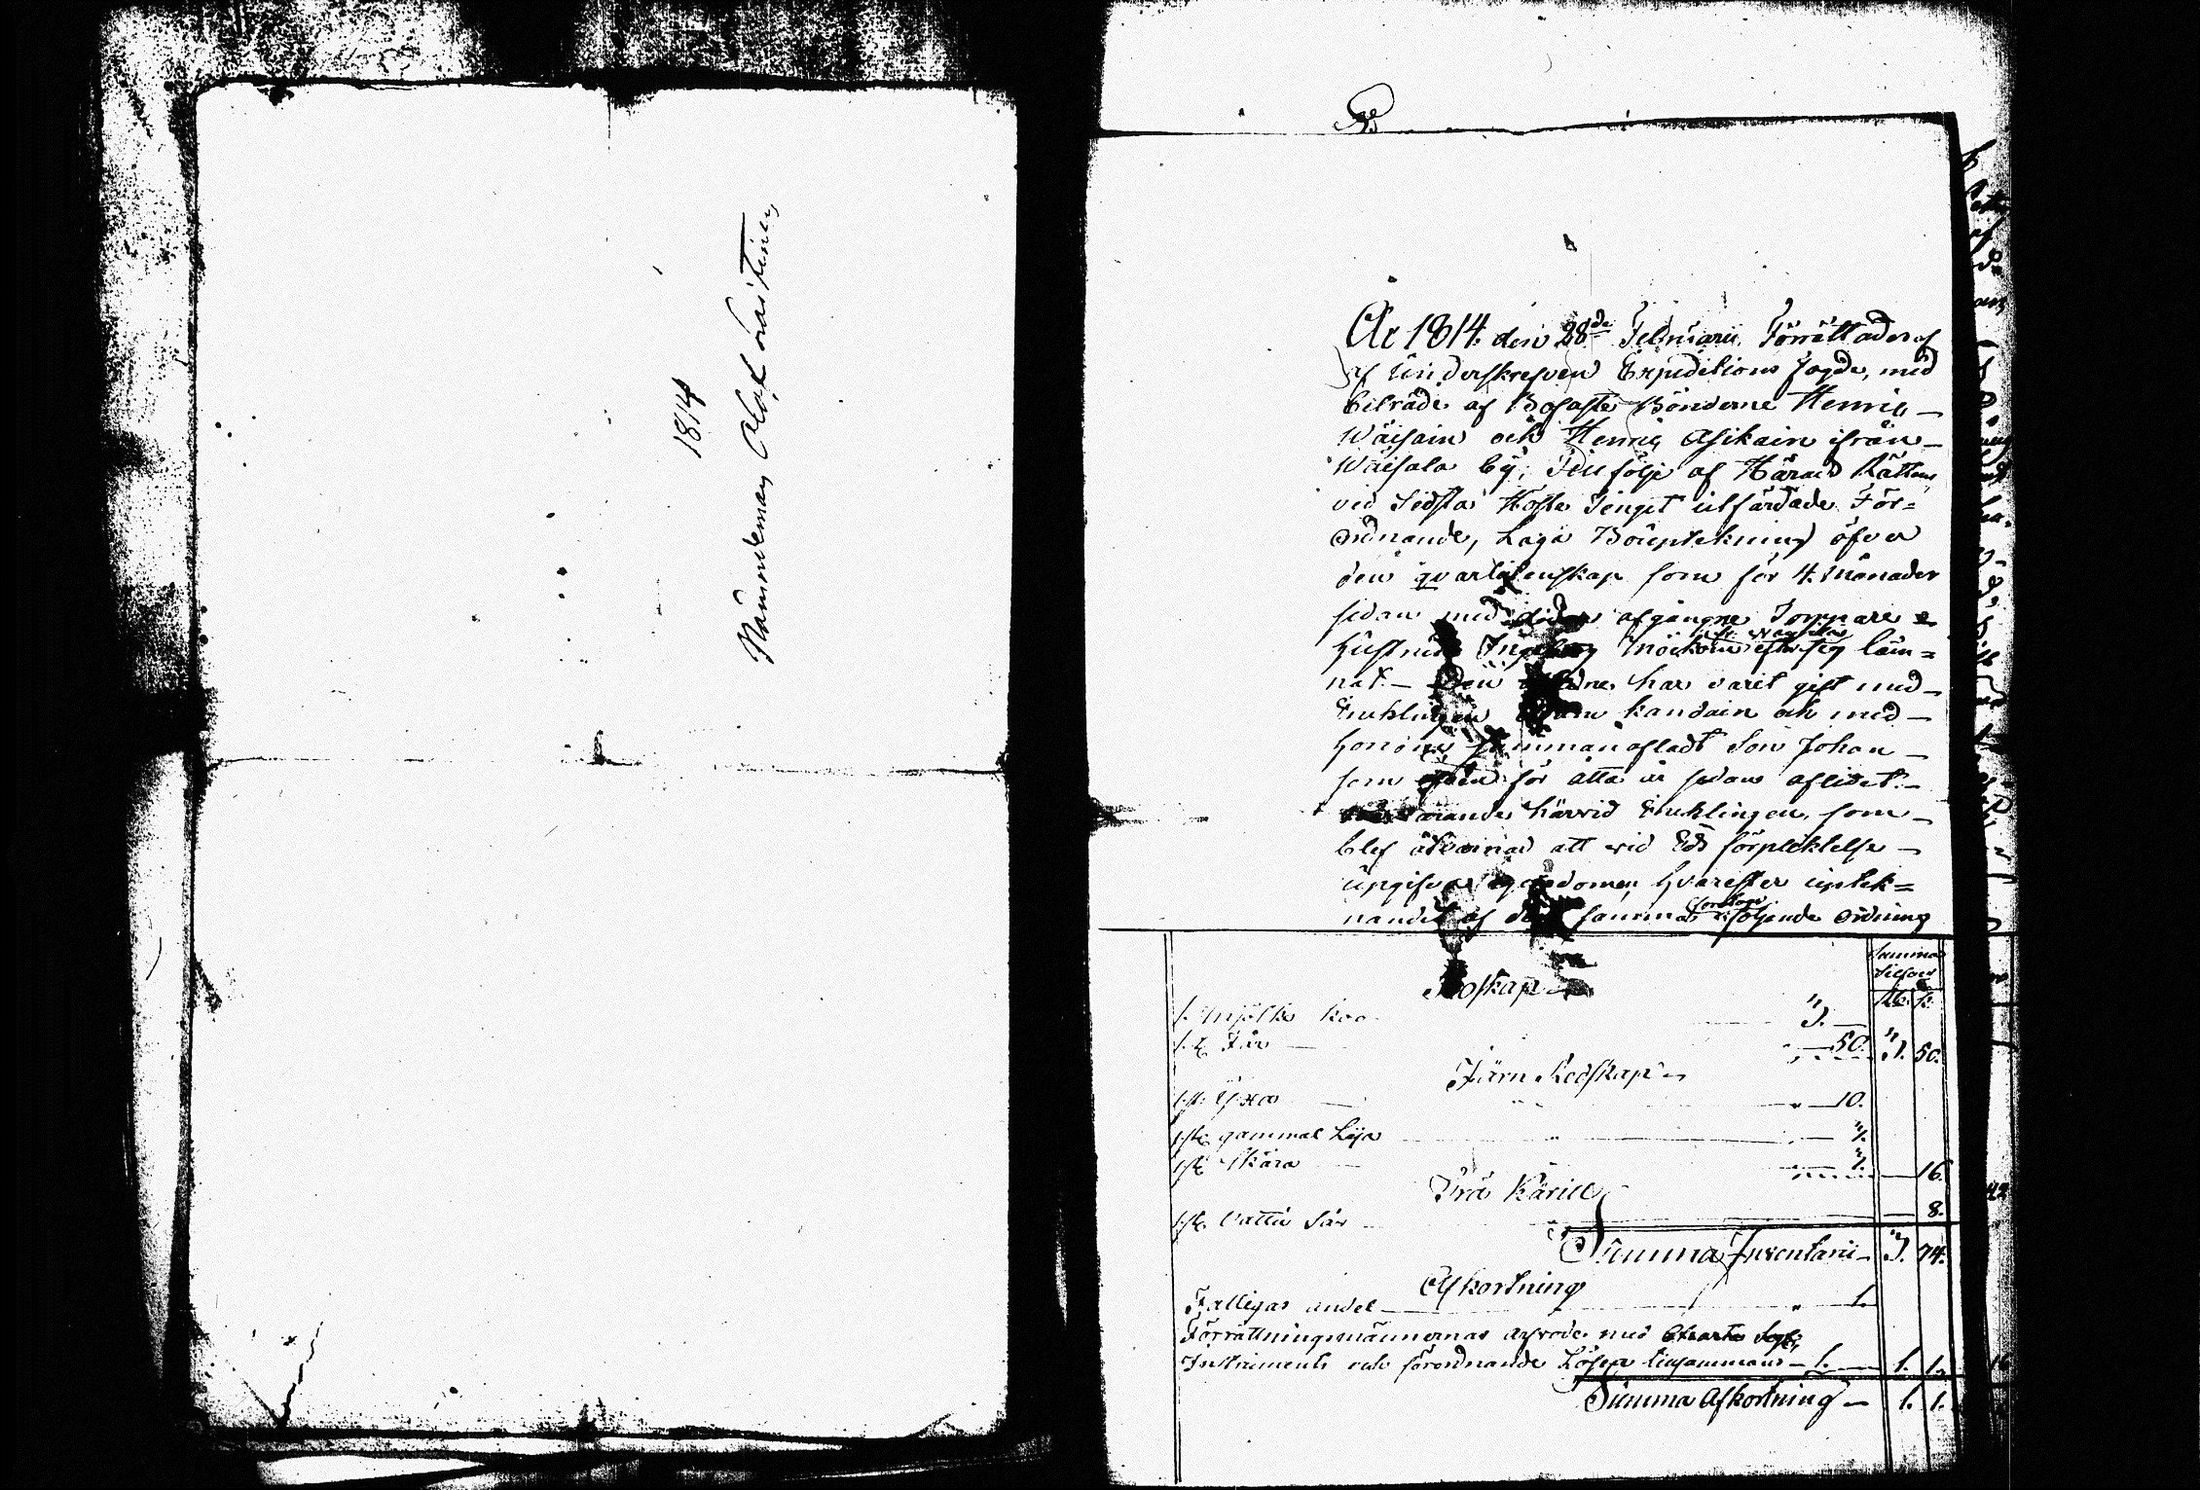 1814
Nämndeman Olof
År 1814. den 28de Februarii Förrättades
af Underskrefven Expeditions Fogde, med
biträde af Bofaste Bönderne Henric
Wäisain och Henric Asikain ifrån
Wäisala by; Till följe af Härads Rättens
vid sidsta Höste Tinget utfärdade För=
ordnande, Laga Bouptekning öfver
den qvarlåtenskap som för 4. Månader
sedan med döden afgångne Torppare
Hustrun Ingeborg efter sig läm=
nat. Den har varit gift med
Enklingen kandain och med
honom sammanafladt Son Johan
som för åtta år sedan aflidet.
varande härvid Enklingen, som
blef åtvarnad att vid Eds förplicktelse
upgifva egendomen hvarefter uptek=
nandet af samma företogs i följande ordning
Summa
Silfver
Rb. k.
Boskap
1. Mjölk koo 3.
1. st Får 50. 3. 50.
Järn Redskap
1. st. Yxa 10.
1 st gammal Lija
1 st Skära 16.
Trä Käril
1 st. Vattu Sår 8.
Summa Inventarii 3. 74.
Afkortning
Fattigas andel 1.
Förrättningsmännernas arfvode med
Instruments och förordnande Lösen tilsammans 1. 1. 1.
Summa Afkortning 1. 1.